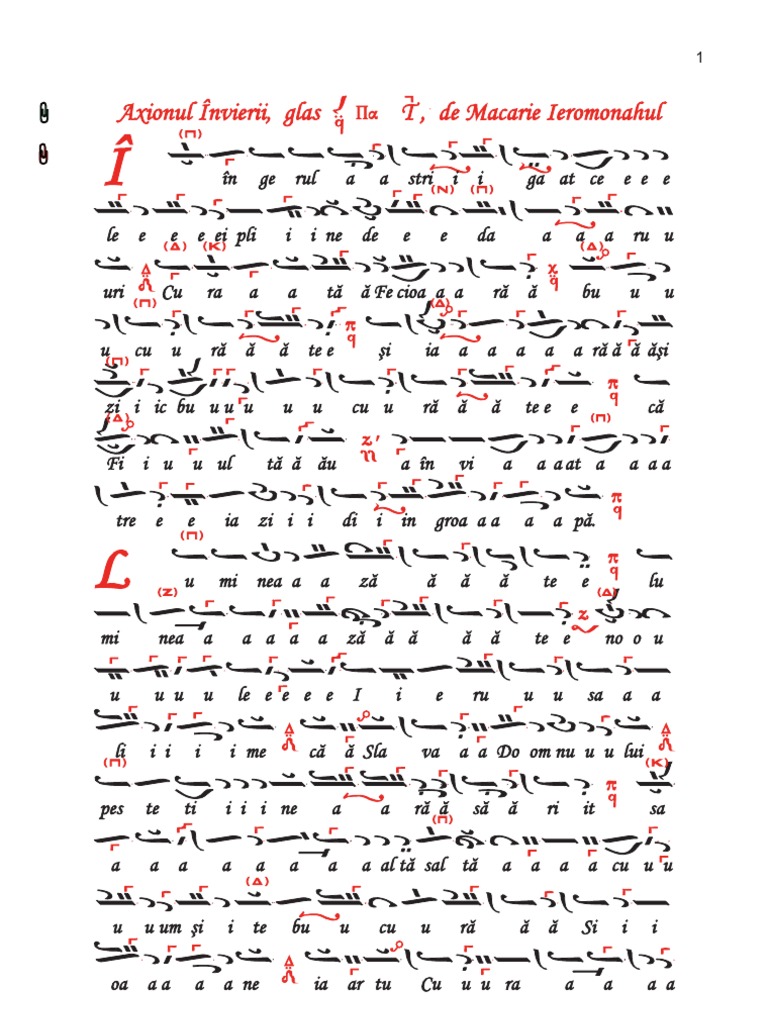 1
Axionul Învierii, glas Πα , de Macarie Ieromonahul
Î în ge rul a a stri i i ga at ce e e e
le e e e ei pli i i ne de e e da a a a ru u
uri Cu ra a a tă ă Fe cioa a a ră ă bu u u
u cu u ră ă ă te e și ia a a a a a ră ă ă ăși
zi i ic bu u u u u u cu u ră ă ă te e e că
Fi i u u ul tă ă ău a în vi a a a at a a a a
tre e e ia zi i i di i in groa a a a a pă.
L u mi nea a a ză ă ă ă ă te e lu
mi nea a a a a a ză ă ă ă ă ă te e no o u
u u u u le e e e e I i e ru u u sa a a
li i i i i me că ă Sla va a a Do om nu u u lui
pes te ti i i i ne a a ră ă să ă ri it sa
a a a a a a a a al tă sal tă a a a a cu u u
u u um și i te bu u cu u ră ă ă Si i i
oa a a a a ne ia ar tu Cu u u ra a a a a